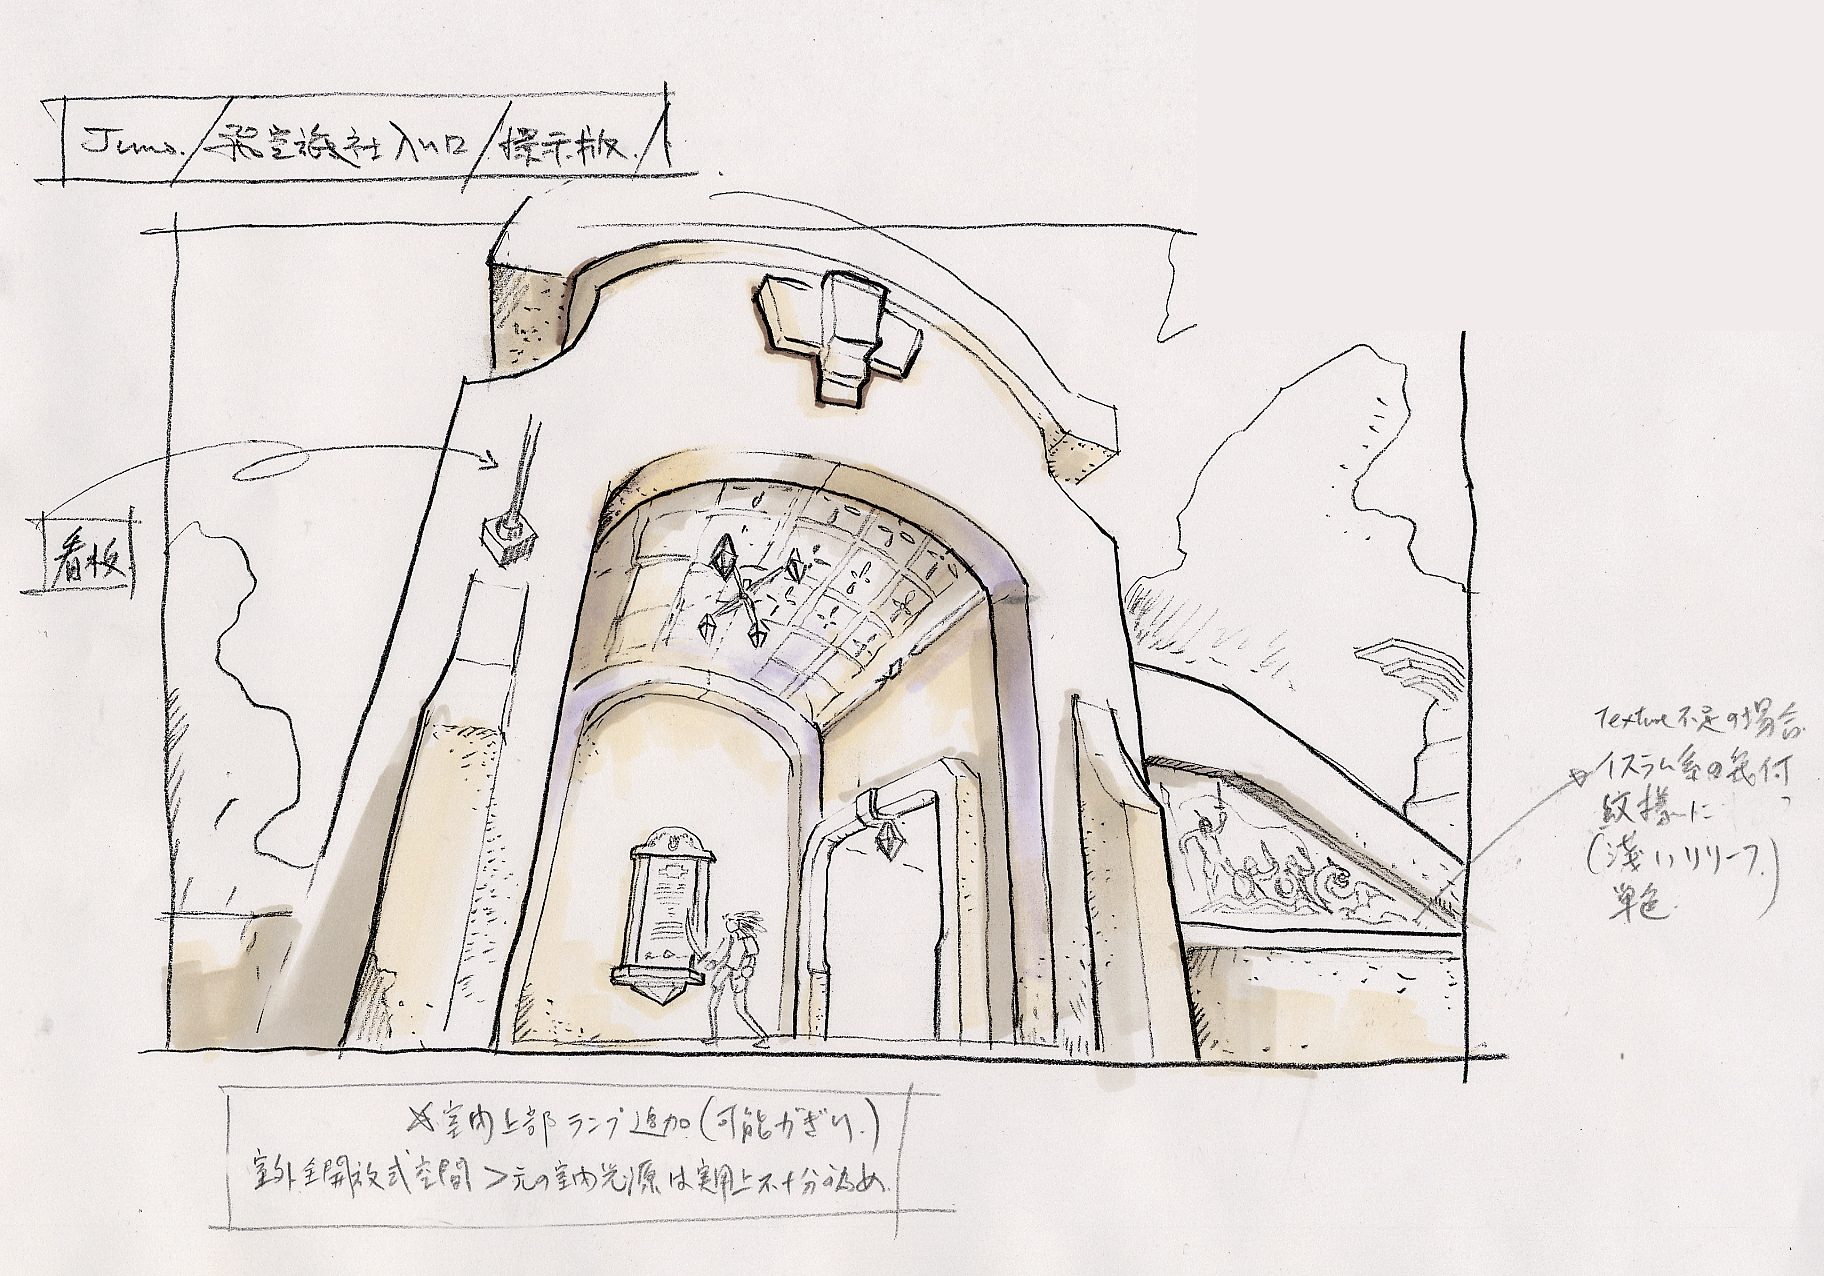 Juno. / 飛空旅社入口 / 掲示版.
看板
Texture不足の場合
イスラム系の気付
紋様に
(浅いリリーフ.)
単色.
室内上部ランプ追加 (可能がぎり.)
室外全開放式空間 > 元の室内光源は実用上不十分の為め